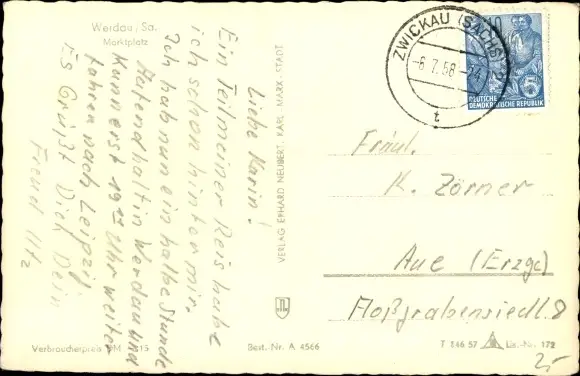 Werdau, Sa.
Marktplatz
Liebe Karin!
Ein Teil meiner Reis habe
ich schon hinter mir.
Ich hab nun ein halbe Stunde
Aufendhalt in Werdau und
kann erst 19 Uhr weiter
fahren nach Leipzig
Es Grüßt Dich Dein
Freud
Verbraucherpreis DM 0,15
VERLAG ERHARD NEUBERT, KARL-MARX-STADT
Best.-Nr. A 4566
ZWICKAU (SACHS)
-6.7.58
t
10
DEUTSCHE
DEMOKRATISCHE REPUBLIK
5
Fräul.
K. Zörner
Aue (Erzge)
Moßgrabensiedl. 8
T 146 57 Liz.-Nr. 172
25